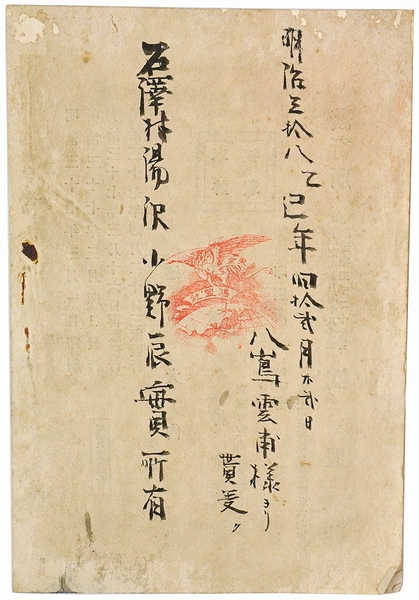 明治三拾八乙巳年旧拾弐月廿弐日
八嶌雲甫様ヨリ
貰受ク
石澤村湯沢小野辰實所有